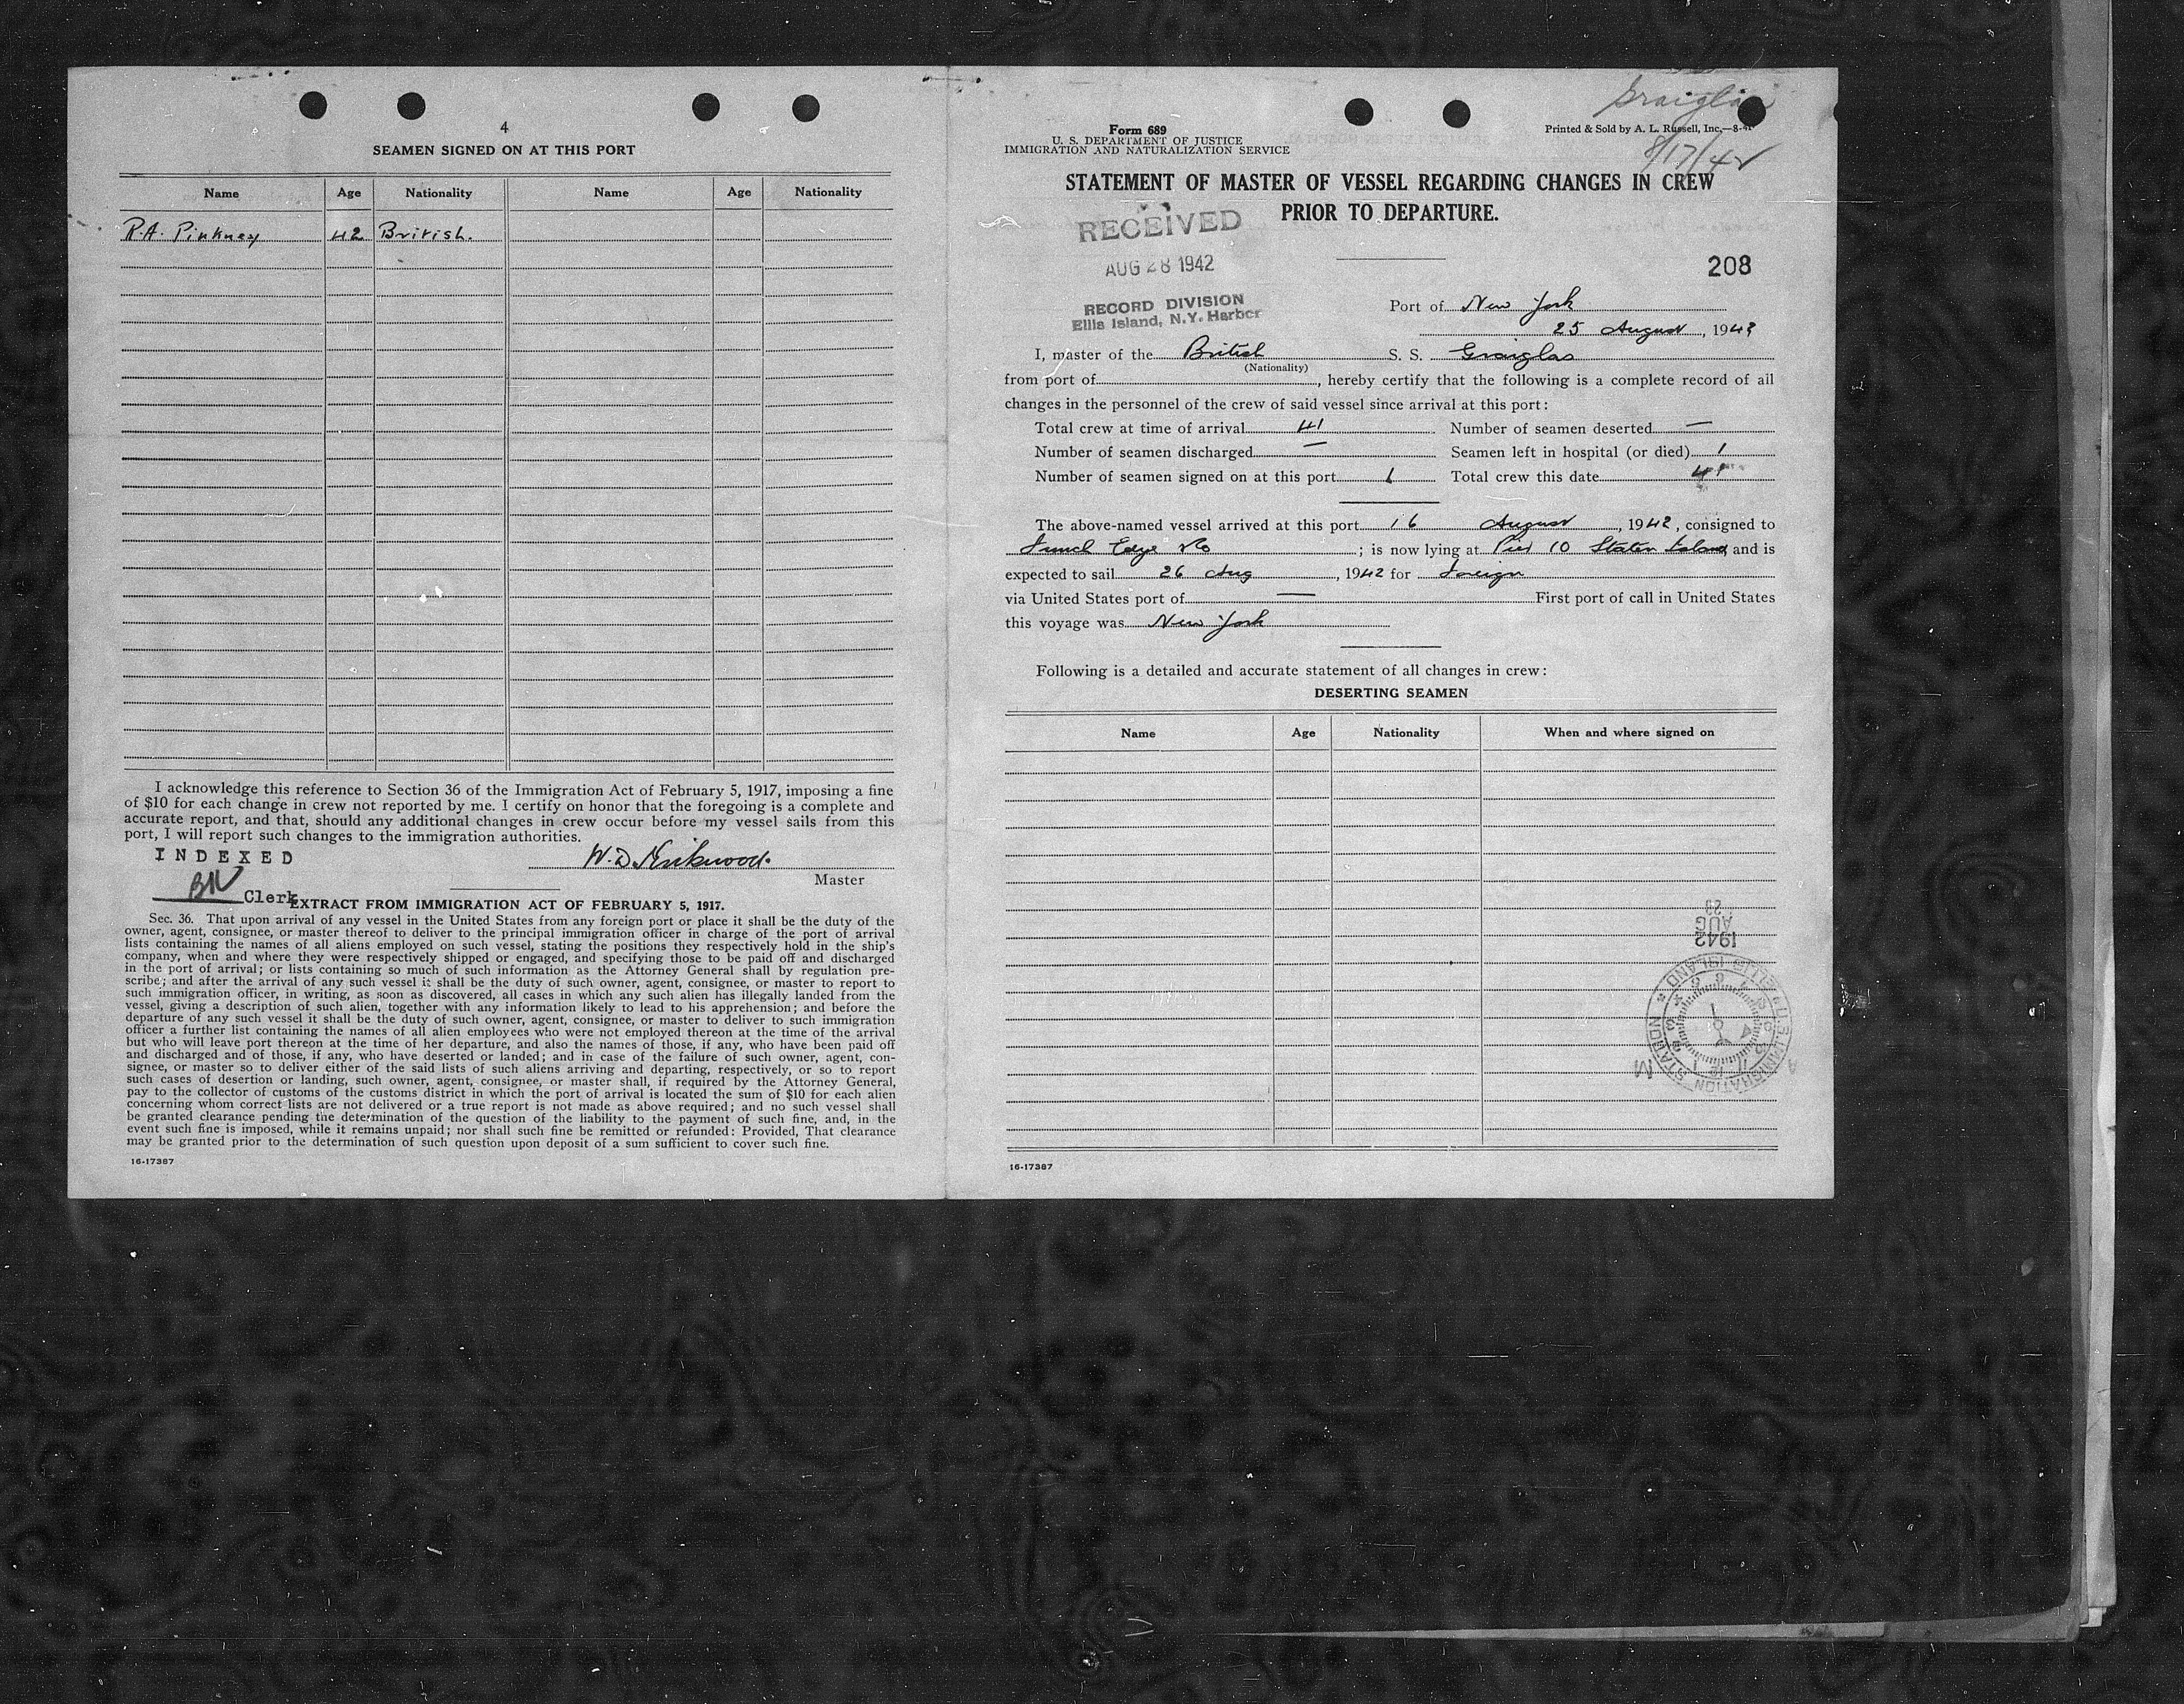 4
SEAMEN SIGNED ON AT THIS PORT
Name Age Nationality Name Age Nationality
R.A. Pinkney 42 British.
I acknowledge this reference to Section 36 of the Immigration Act of February 5, 1917, imposing a fine
of $10 for each change in crew not reported by me. I certify on honor that the foregoing is a complete and
accurate report, and that, should any additional changes in crew occur before my vessel sails from this
port, I will report such changes to the immigration authorities.
INDEXED
W. D. Kirkwood.
Master
Clerk
EXTRACT FROM IMMIGRATION ACT OF FEBRUARY 5, 1917.
Sec. 36. That upon arrival of any vessel in the United States from any foreign port or place it shall be the duty of the
owner, agent, consignee, or master thereof to deliver to the principal immigration officer in charge of the port of arrival
lists containing the names of all aliens employed on such vessel, stating the positions they respectively hold in the ship's
company, when and where they were respectively shipped or engaged, and specifying those to be paid off and discharged
in the port of arrival; or lists containing so much of such information as the Attorney General shall by regulation pre-
scribe; and after the arrival of any such vessel it shall be the duty of such owner, agent, consignee, or master to report to
such immigration officer, in writing, as soon as discovered, all cases in which any such alien has illegally landed from the
vessel, giving a description of such alien, together with any information likely to lead to his apprehension; and before the
departure of any such vessel it shall be the duty of such owner, agent, consignee, or master to deliver to such immigration
officer a further list containing the names of all alien employees who were not employed thereon at the time of the arrival
but who will leave port thereon at the time of her departure, and also the names of those, if any, who have been paid off
and discharged and of those, if any, who have deserted or landed; and in case of the failure of such owner, agent, con-
signee, or master so to deliver either of the said lists of such aliens arriving and departing, respectively, or so to report
such cases of desertion or landing, such owner, agent, consignee, or master shall, if required by the Attorney General,
pay to the collector of customs of the customs district in which the port of arrival is located the sum of $10 for each alien
concerning whom correct lists are not delivered or a true report is not made as above required; and no such vessel shall
be granted clearance pending the determination of the question of the liability to the payment of such fine, and, in the
event such fine is imposed, while it remains unpaid; nor shall such fine be remitted or refunded: Provided, That clearance
may be granted prior to the determination of such question upon deposit of a sum sufficient to cover such fine.
16-17387
Graiglas
8/17/42
Form 689
U. S. DEPARTMENT OF JUSTICE
IMMIGRATION AND NATURALIZATION SERVICE
Printed & Sold by A. L. Russell, Inc.—8-41
STATEMENT OF MASTER OF VESSEL REGARDING CHANGES IN CREW
PRIOR TO DEPARTURE.
RECEIVED
AUG 28 1942
RECORD DIVISION
Ellis Island, N.Y. Harbor
208
Port of New York
25 August, 1942
I, master of the British S. S. Graiglas
(Nationality)
from port of , hereby certify that the following is a complete record of all
changes in the personnel of the crew of said vessel since arrival at this port:
Total crew at time of arrival 41 Number of seamen deserted —
Number of seamen discharged — Seamen left in hospital (or died) 1
Number of seamen signed on at this port 1 Total crew this date 41
The above-named vessel arrived at this port 16 August, 1942, consigned to
Funch Edye & Co ; is now lying at Pier 10 Staten Island and is
expected to sail 26 Aug, 1942 for Foreign
via United States port of — First port of call in United States
this voyage was New York
Following is a detailed and accurate statement of all changes in crew:
DESERTING SEAMEN
Name Age Nationality When and where signed on
1942
AUG
U.S. IMMIGRATION STATION
ELLIS ISLAND
16-17387